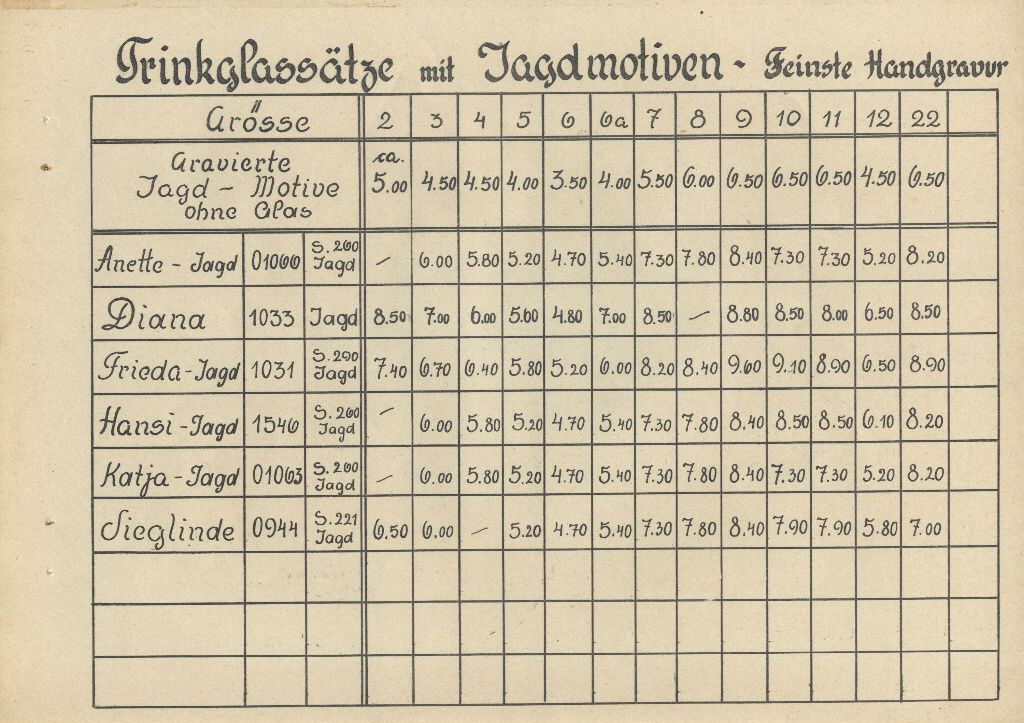 Trinkglassätze mit Jagdmotiven - Feinste Handgravur
Grösse 2 3 4 5 6 6a 7 8 9 10 11 12 22
Gravierte
Jagd - Motive
ohne Glas
ca. 5.00 4.50 4.50 4.00 3.50 4.00 5.50 6.00 6.50 6.50 6.50 4.50 6.50
Anette - Jagd 01066 S. 260 Jagd - 6.00 5.80 5.20 4.70 5.40 7.30 7.80 8.40 7.30 7.30 5.20 8.20
Diana 1033 Jagd 8.50 7.00 6.00 5.60 4.80 7.00 8.50 - 8.80 8.50 8.00 6.50 8.50
Frieda - Jagd 1031 S. 290 Jagd 7.40 6.70 6.40 5.80 5.20 6.00 8.20 8.40 9.60 9.10 8.90 6.50 8.90
Hansi - Jagd 1546 S. 260 Jagd - 6.00 5.80 5.20 4.70 5.40 7.30 7.80 8.40 8.50 8.50 6.10 8.20
Katja - Jagd 01063 S. 260 Jagd - 6.00 5.80 5.20 4.70 5.40 7.30 7.80 8.40 7.30 7.30 5.20 8.20
Sieglinde 0944 S. 221 Jagd 6.50 6.00 - 5.20 4.70 5.40 7.30 7.80 8.40 7.90 7.90 5.80 7.00